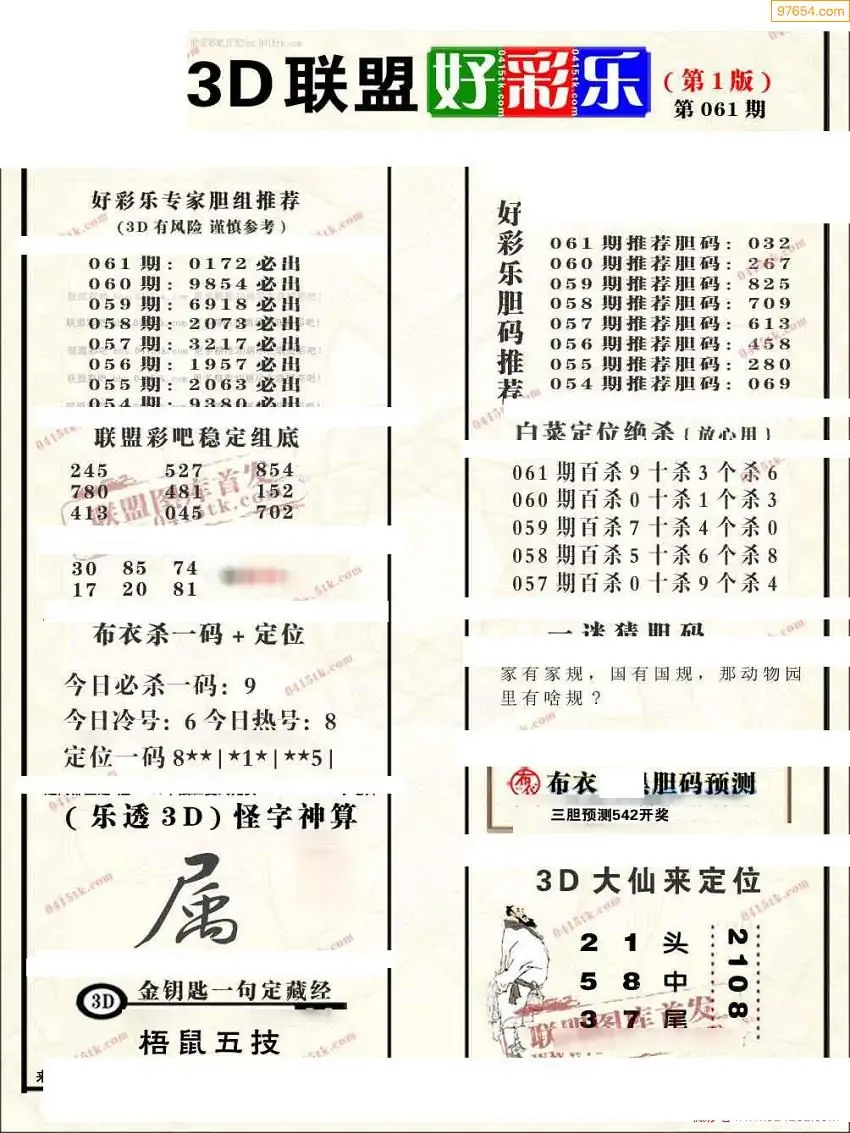 97654.com
3D联盟好彩乐
(第1版)
第061期
好彩乐专家胆组推荐
(3D有风险 谨慎参考)
061期: 0172必出
060期: 9854必出
059期: 6918必出
058期: 2073必出
057期: 3217必出
056期: 1957必出
055期: 2063必出
054期: 9380必出
联盟彩吧稳定组底
245 527 854
780 481 152
413 045 702
30 85 74
17 20 81
布衣杀一码+定位
今日必杀一码: 9
今日冷号: 6 今日热号: 8
定位一码 8**|*1*|**5|
(乐透3D)怪字神算
属
3D 金钥匙一句定藏经
梧鼠五技
好彩乐胆码推荐
061期推荐胆码: 032
060期推荐胆码: 267
059期推荐胆码: 825
058期推荐胆码: 709
057期推荐胆码: 613
056期推荐胆码: 458
055期推荐胆码: 280
054期推荐胆码: 069
白菜定位绝杀{放心用}
061期百杀9十杀3个杀6
060期百杀0十杀1个杀3
059期百杀7十杀4个杀0
058期百杀5十杀6个杀8
057期百杀0十杀9个杀4
一迷猜胆码
家有家规，国有国规，那动物园
里有啥规？
布衣 胆码预测
三胆预测542开奖
3D大仙来定位
2 1 头
5 8 中
3 7 尾
2108
联盟图库首发
0415tk.com